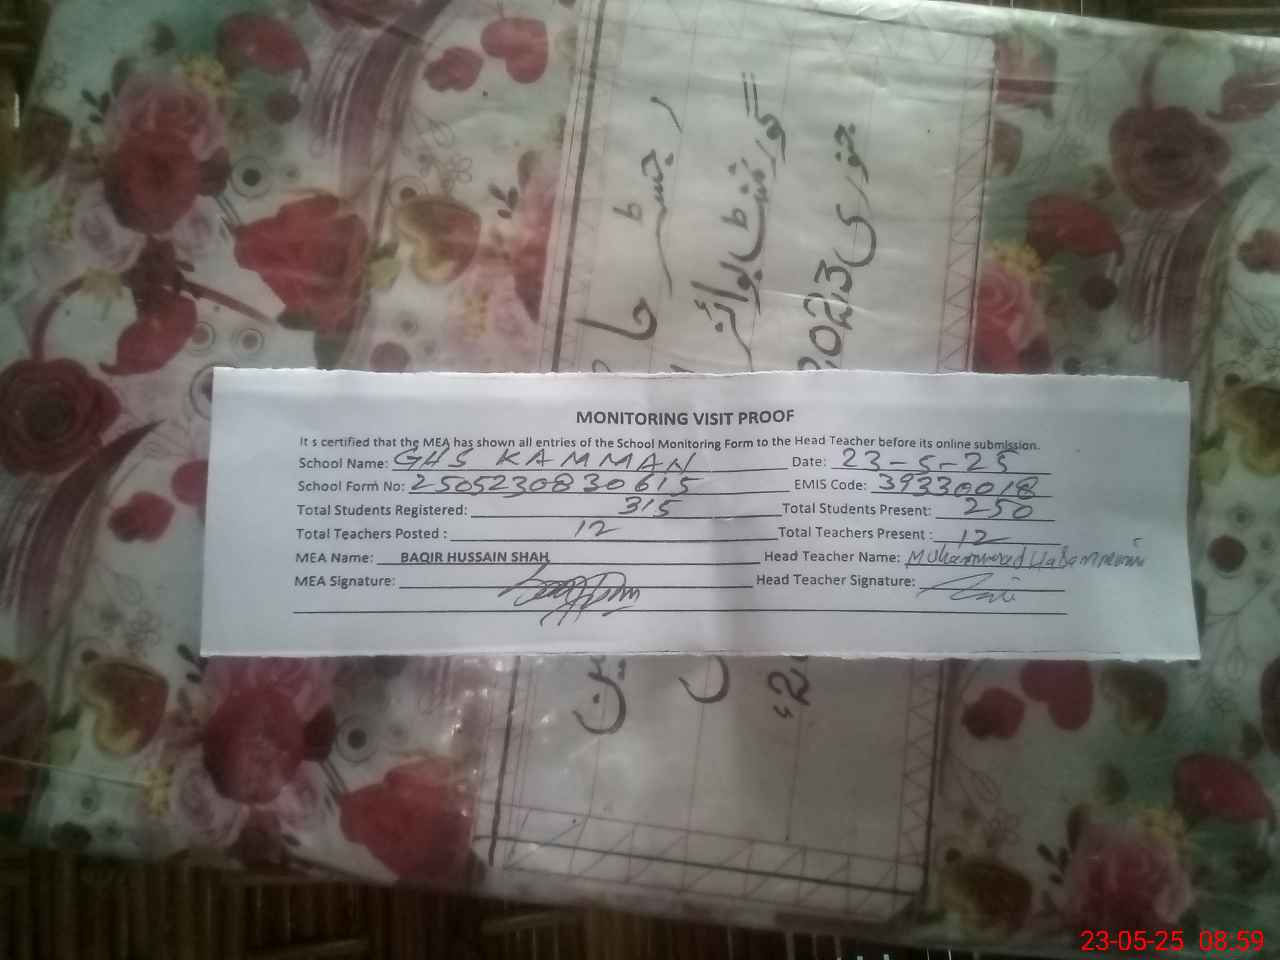 MONITORING VISIT PROOF
It s certified that the MEA has shown all entries of the School Monitoring Form to the Head Teacher before its online submission.
School Name: GHS KAMMAN Date: 23-5-25
School Form No: 2505230830615 EMIS Code: 39330018
Total Students Registered: 315 Total Students Present: 250
Total Teachers Posted : 12 Total Teachers Present : 12
MEA Name: BAQIR HUSSAIN SHAH Head Teacher Name: Muhammad
MEA Signature: Head Teacher Signature:
جنوری 2023
23-05-25 08:59